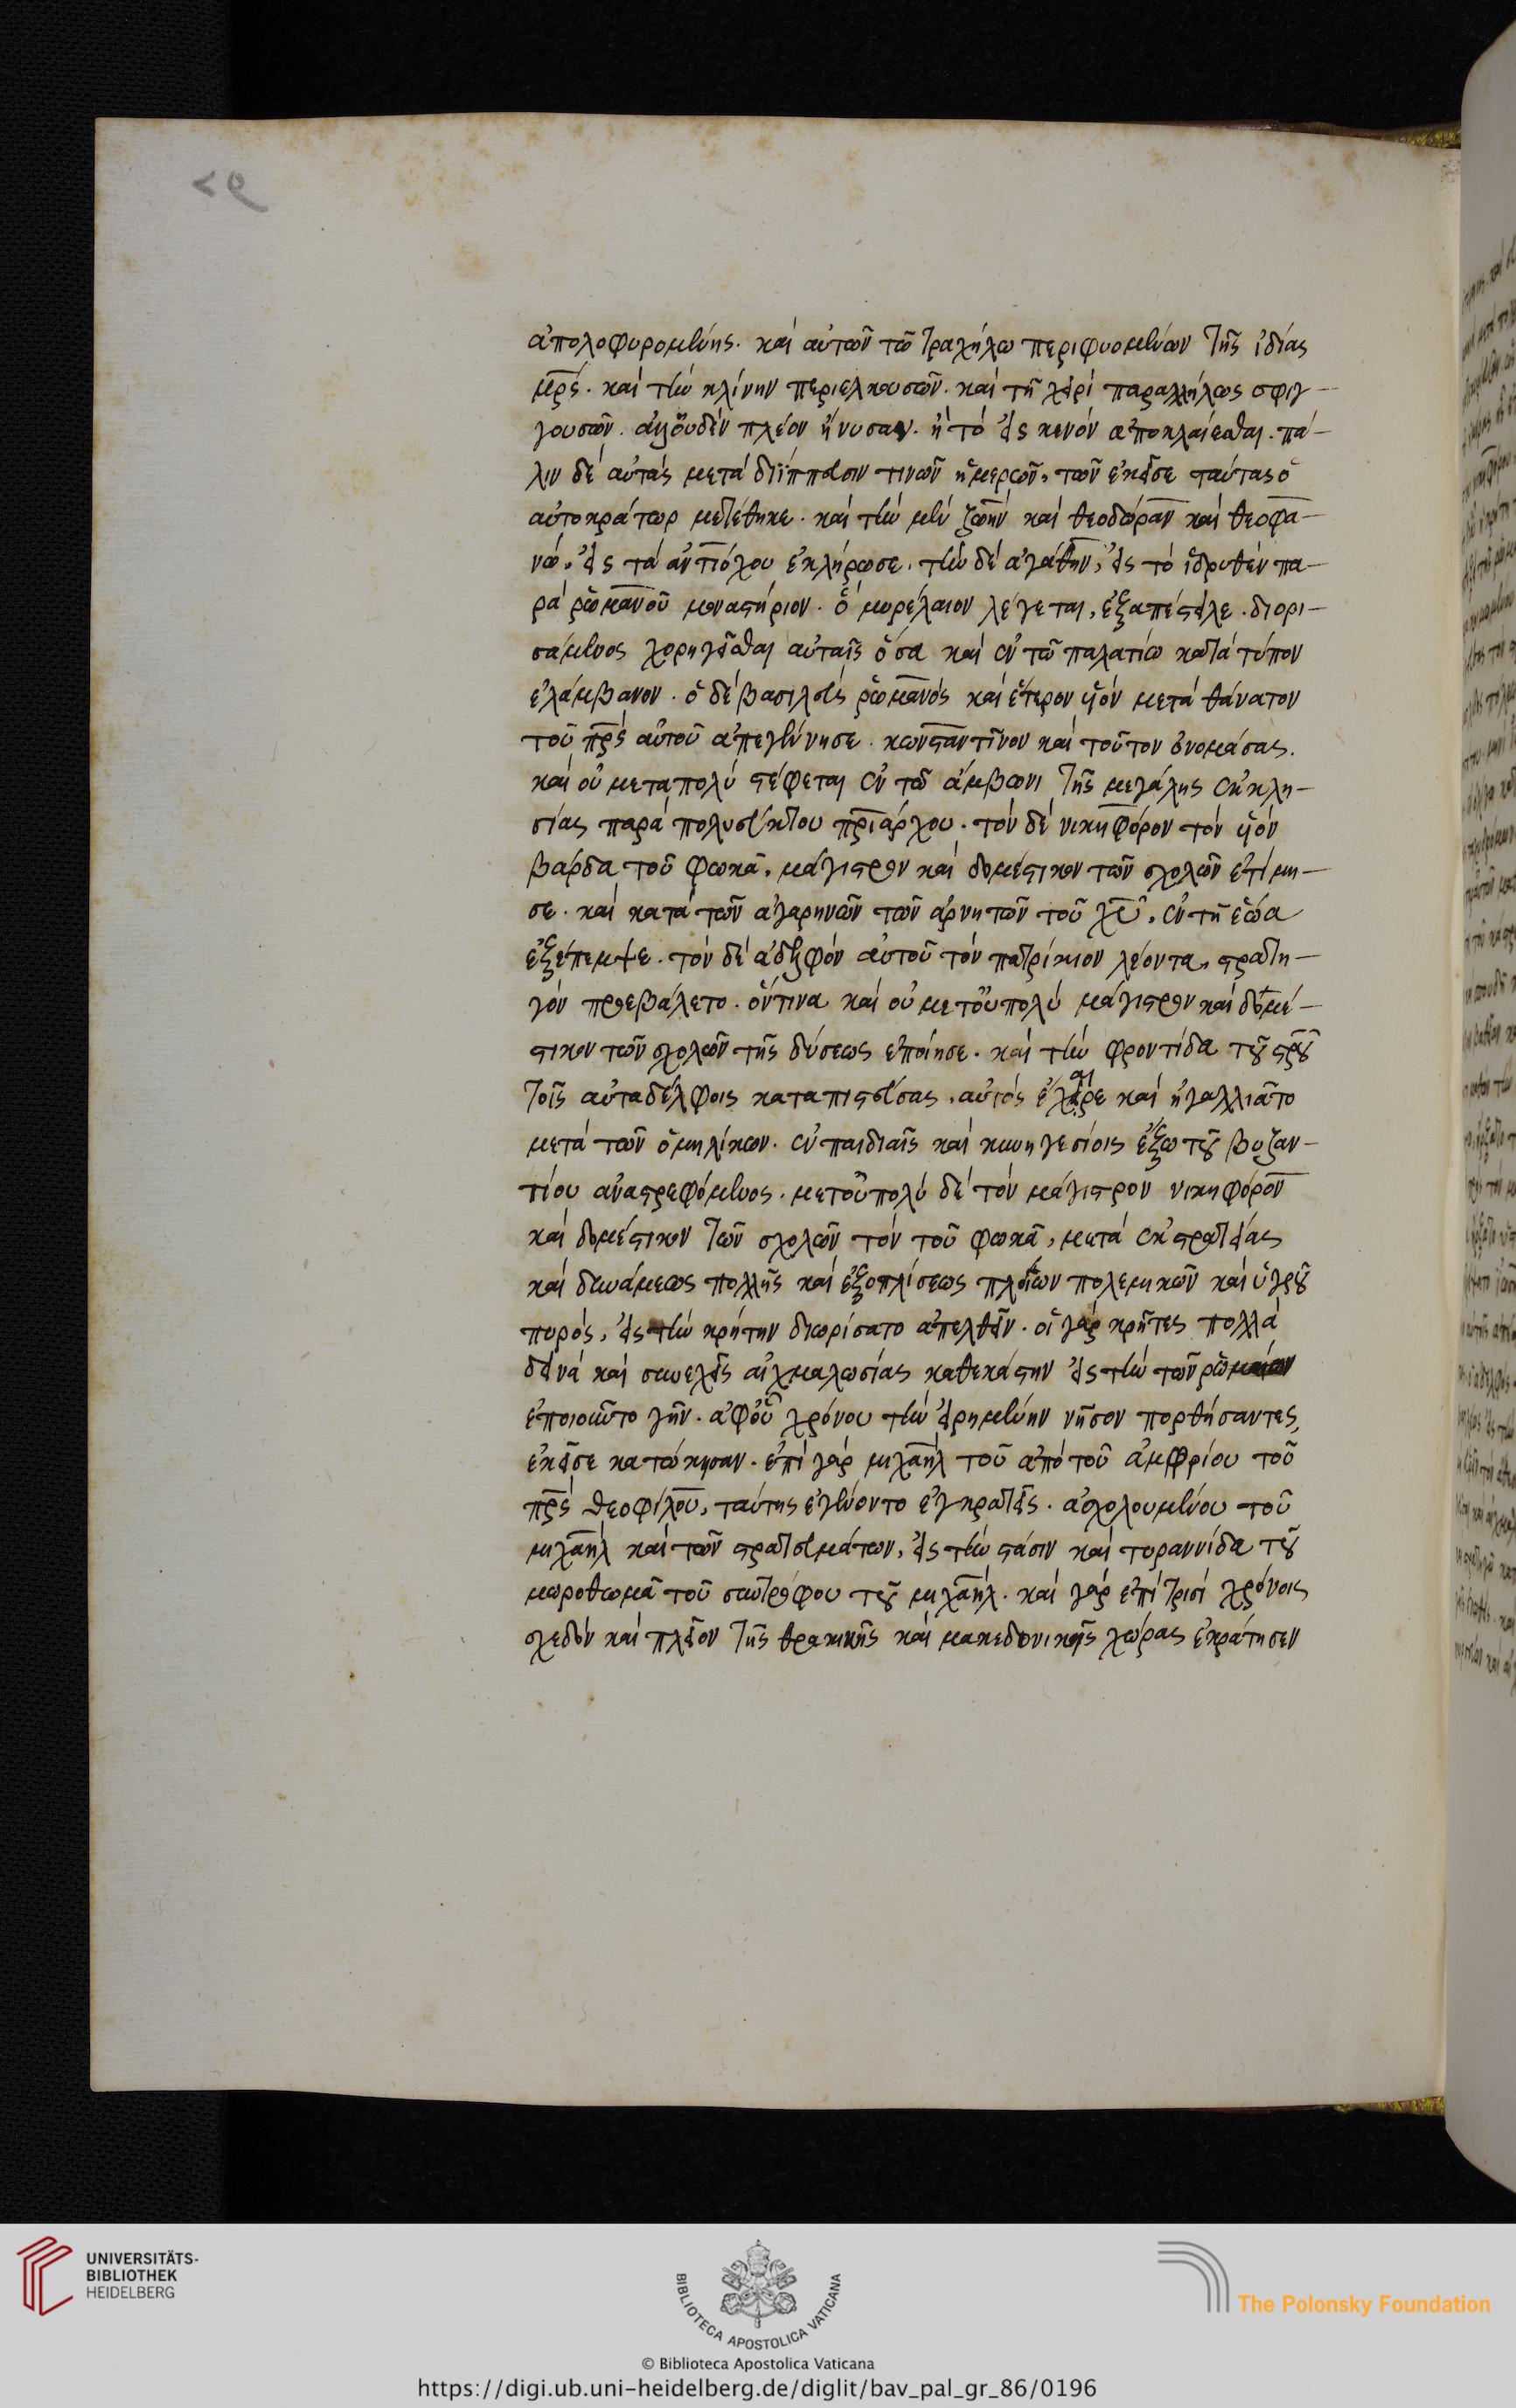 ἀπολοφυρομένης. καὶ αὐτῶν τῶ τραχήλω περιφυομένων τῆς ἰδίας
μρ̅ς. καὶ τὴν κλίνην περιελκουσῶν. καὶ τῆ χειρὶ παραλλήλως σφιγ-
γουσῶν. ἀλλ' οὐδὲν πλέον ἤνυσαν. ἢ τὸ εἰς κενὸν ἀποκλαίεσθαι. πά-
λιν δὲ αὐτὰς μετὰ διΐππευσιν τινῶν ἡμερῶν, τῶν ἐκεῖσε ταύτας ὁ
αὐτοκράτωρ μετέθηκε. καὶ τὴν μὲν ζωὴν καὶ θεοδώραν καὶ θεοφα-
νὼ, εἰς τὰ ἀντιόχου ἐκλήρωσε. τὴν δὲ ἀγάθην, εἰς τὸ ἱδρυθὲν πα-
ρὰ ῥωμανοῦ μοναστήριον. ὃ μυρέλαιον λέγεται, ἐξαπέστειλε. διορι-
σάμενος χορηγεῖσθαι αὐταῖς ὅσα καὶ ἐν τῶ παλατίω κατὰ τύπον
ἐλάμβανον. ὁ δὲ βασιλεὺς ῥωμανὸς καὶ ἕτερον υἱὸν μετὰ θάνατον
τοῦ πρ̅ς αὐτοῦ ἀπεγέννησε. κωνσταντῖνον καὶ τοῦτον ὀνομάσας.
καὶ οὐ μεταπολὺ στέφεται ἐν τῶ ἄμβωνι τῆς μεγάλης ἐκκλη-
σίας παρὰ πολυεύκτου πριάρχου. τὸν δὲ νικηφόρον τὸν υἱὸν
βάρδα τοῦ φωκᾶ, μάγιστρον καὶ δομέστικον τῶν σχολῶν ἐτίμη-
σε. καὶ κατὰ τῶν ἀγαρηνῶν τῶν ἀρνητῶν τοῦ χυ̅, ἐν τῆ ἑώα
ἐξέπεμψε. τὸν δὲ ἀδελφὸν αὐτοῦ τὸν πατρίκιον λέοντα, στρατη-
γὸν προεβάλετο. ὅντινα καὶ οὐ μετοὐπολὺ μάγιστρον καὶ δομέ-
στικον τῶν σχολῶν τῆς δύσεως ἐποίησε. καὶ τὴν φροντίδα τοῦ στρου
τοῖς αὐταδέλφοις καταπιστεύσας, αὐτὸς ἔχαιρε καὶ ἠγαλλιᾶτο
μετὰ τῶν ὁμηλίκων. ἐν παιδιαῖς καὶ κυνηγεσίοις ἔξω τοῦ βυζαν-
τίου ἀναστρεφόμενος. μετοὐπολὺ δὲ τὸν μάγιστρον νικηφόρον
καὶ δομέστικον τῶν σχολῶν τὸν τοῦ φωκᾶ, μετὰ ἐκστρατείας
καὶ δυνάμεως πολλῆς καὶ ἐξοπλίσεως πλοίων πολεμικῶν καὶ ὑγροῦ
πυρὸς, εἰς τὴν κρήτην διωρίσατο ἀπελθεῖν. οἱ γὰρ κρῆτες πολλὰ
δεινὰ καὶ συνελεῖς αἰχμαλωσίας καθεκάστην εἰς τὴν τῶν ῥωμαίων
ἐποιοῦντο γῆν. ἀφοῦ χρόνου τὴν εἰρημένην νῆσον πορθήσαντες,
ἐκεῖσε κατώκησαν. ἐπὶ γὰρ μιχαὴλ τοῦ ἀπὸ τοῦ ἀμορίου τοῦ
πρ̅ς θεοφίλου, ταύτης ἐγένοντο ἐγκρατεῖς. ἀσχολουμένου τοῦ
μιχαὴλ καὶ τῶν στρατευμάτων, εἰς τὴν στάσιν καὶ τυραννίδα τοῦ
μωροθωμᾶ τοῦ συντρόφου τοῦ μιχαήλ. καὶ γὰρ ἐπὶ τρισὶ χρόνοις
σχεδὸν καὶ πλεῖον τῆς θρακικῆς καὶ μακεδονικῆς χώρας ἐκράτησεν
UNIVERSITÄTS-
BIBLIOTHEK
HEIDELBERG
BIBLIOTECA APOSTOLICA VATICANA
The Polonsky Foundation
© Biblioteca Apostolica Vaticana
https://digi.ub.uni-heidelberg.de/diglit/bav_pal_gr_86/0196